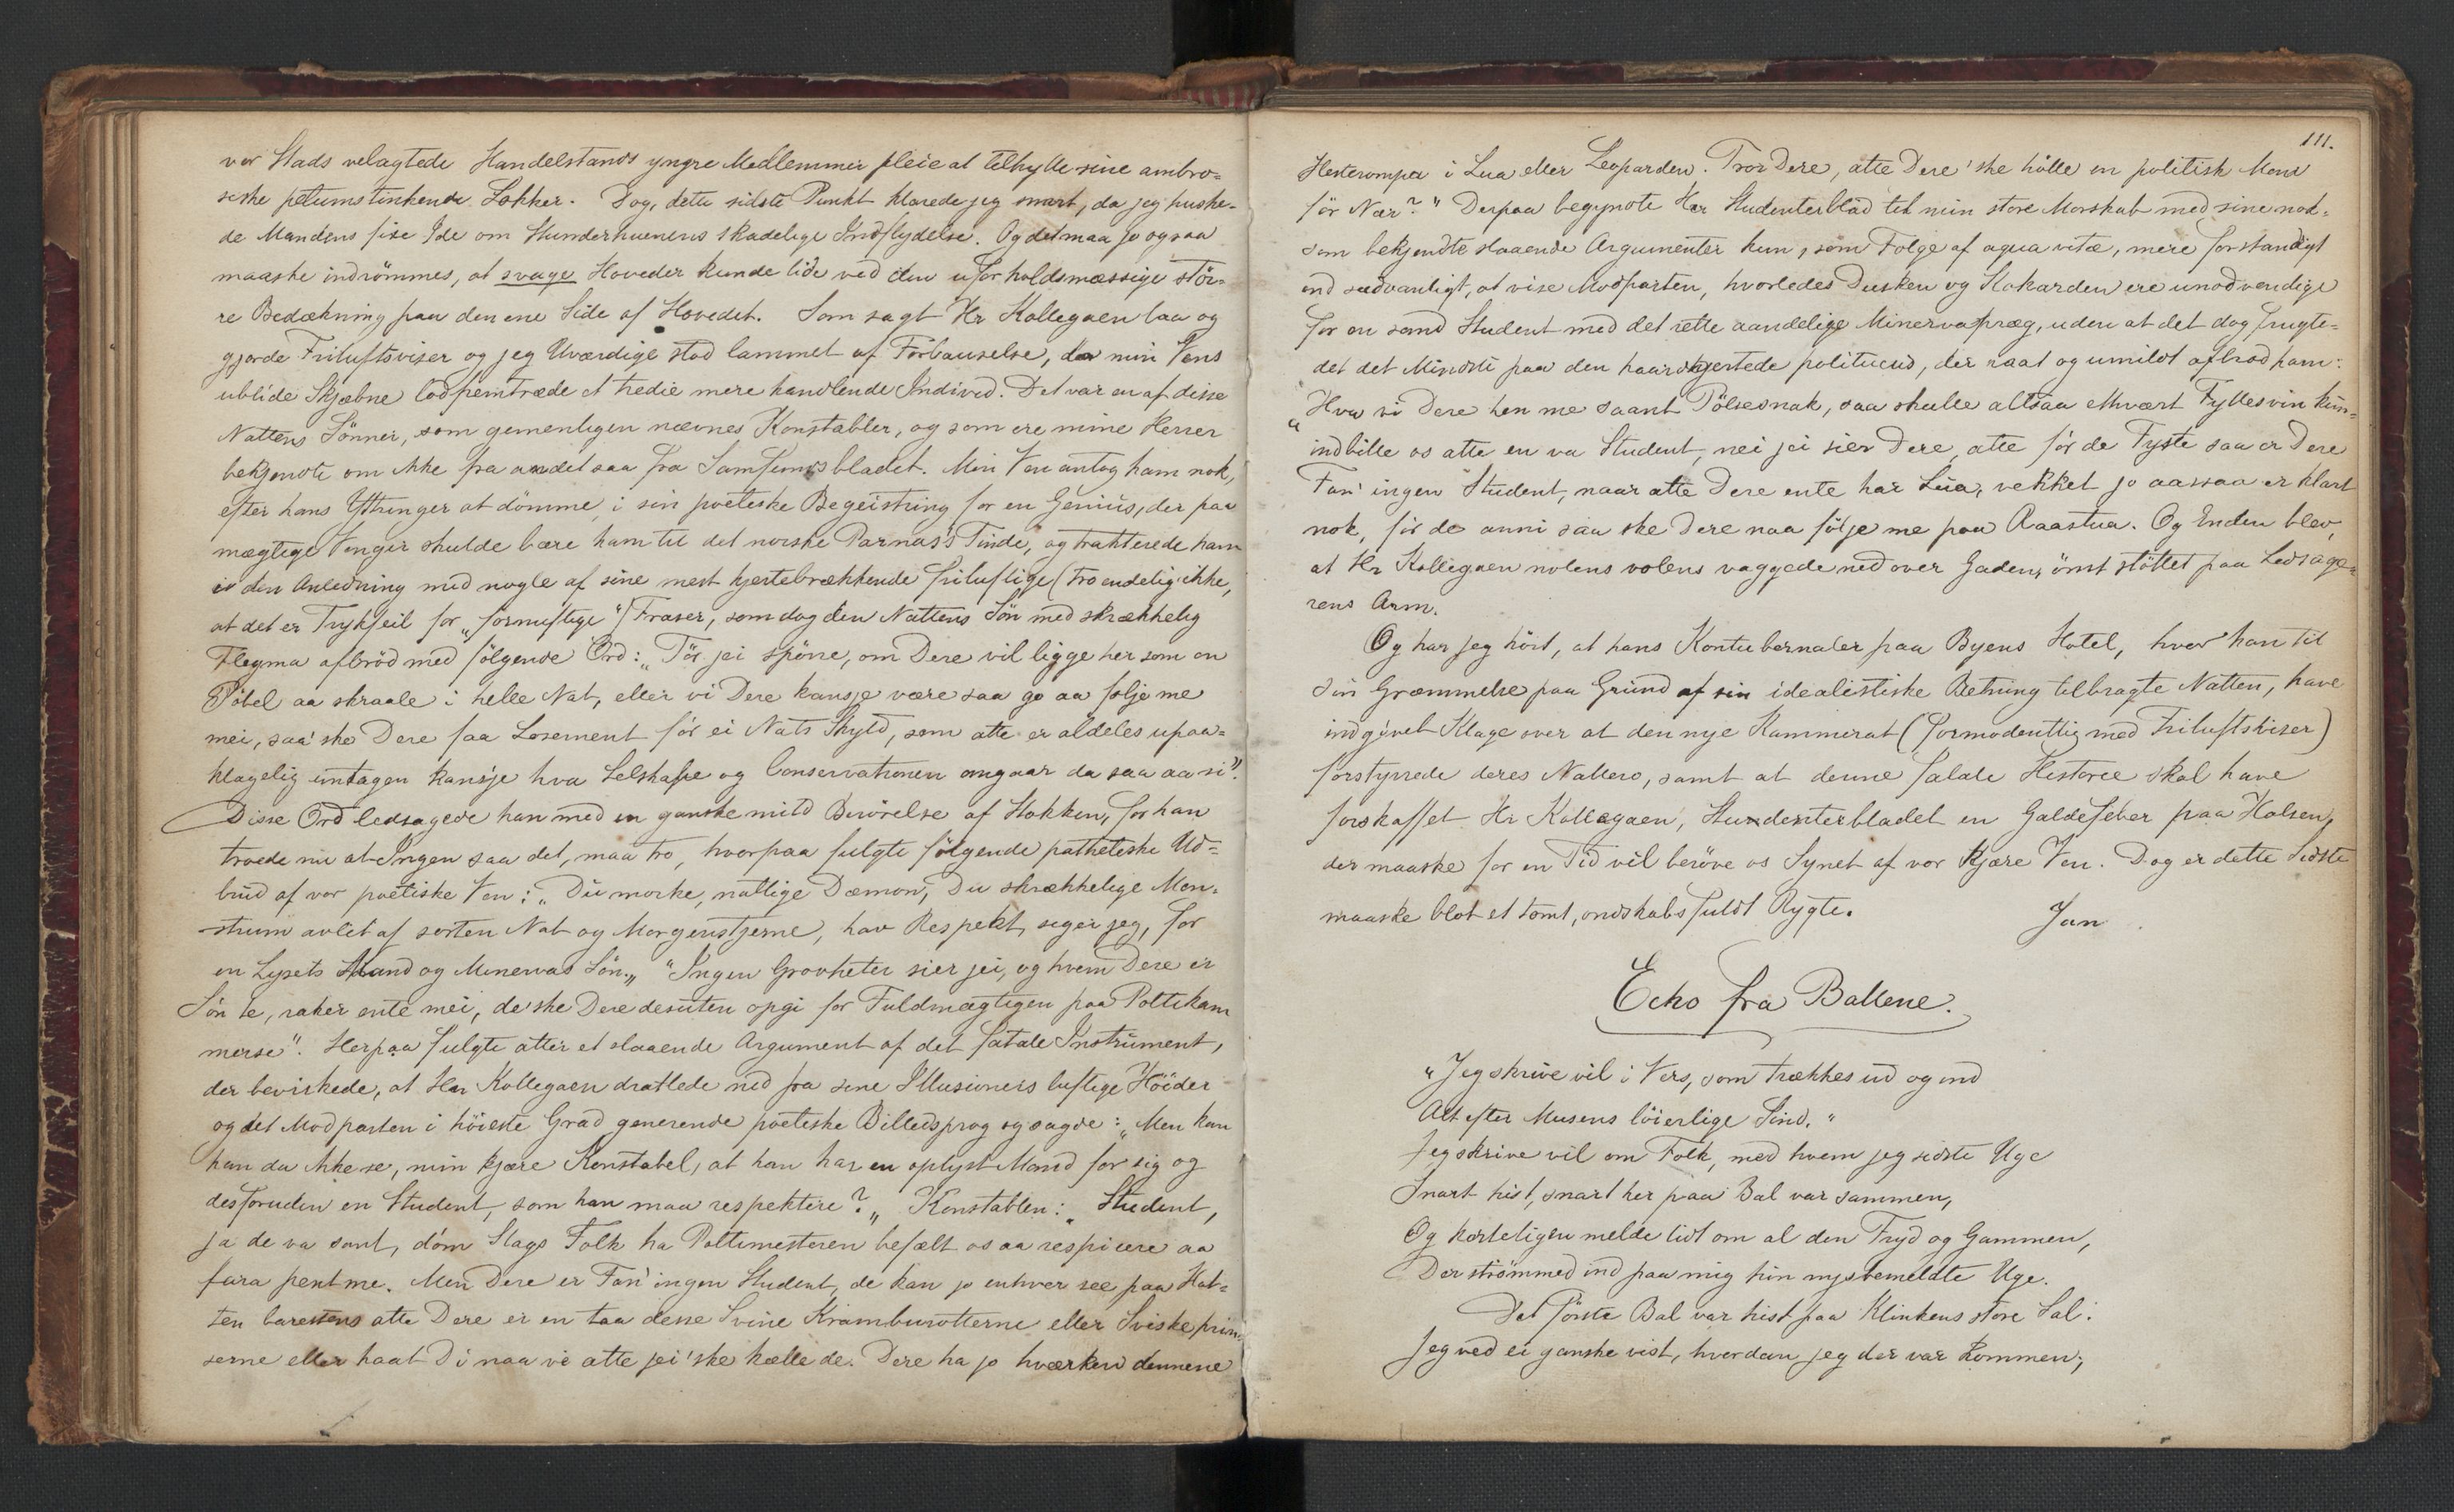 vor Stads velagtede Handelstands yngre Medlemmer pleie at tilhylle sine ambro-
siske petumstinkende Lokker. Dog, dette sidste Punkt klarede jeg snart, da jeg huske-
de Mandens fixe Ide om Stunderhuenens skadelige Indflydelse. Og det maa jo ogsaa
maaske indrömmes, at svage Hoveder kunde lide ved den uforholdsmæssige stör-
re Bedækning paa den ene Side af Hovedet. Som sagt Hr Kollegaen laa og
gjorde Friluftsviser og jeg Uværdige stod lammet af Forbauselse, da min Vens
ublide Skjæbne lod fremtræde et tredie mere handlende Individ. Det var en af disse
Nattens Sönner, som gemenligen nævnes Konstabler, og som ere mine Herrer
bekjendte om ikke fra andet saa fra Samfundsbladet. Min Ven antog ham nok,
efter hans Yttringer at dömme, i sin poetiske Begeistring for en Genius, der paa
mægtige Vinger skulde bære ham til det norske Parnas's Tinde, og trakterede ham
i den Anledning med nogle af sine mest hjertebrækkende friluftige (tro endelig ikke,
at det er Trykfeil for „fornuftige") Fraser, som dog den Nattens Sön med skrækkelig
Flegma afbröd med fölgende Ord: „Tör jei spörre, om Dere vil ligge her som en
Pöbel aa skraale i helle Nat, eller vi Dere kansje være saa go aa følje me
mei, saa' ske Dere faa Losement för ei Nats Skyld, som atte er aldeles upaa-
klagelig untagen kansje hva Selskape og Conservationen angaar da saa aa si".
Disse Ord ledsagede han med en ganske mild Berörelse af Stokken, for han
troede nu at Ingen saa det, maa tro, hvorpaa fulgte fölgende pathetiske Ud-
brud af vor poetiske Ven: „Du mørke, natlige Dæmon, Du skrækkelige Mon-
strum avlet af sorten Nat og Morgenstjerne, hav Respekt, siger jeg, for
en Lysets Aand og Minervas Sön." "Ingen Grovheter sier jei, og hvem Dere er
Sön te, raker ente mei, de ske Dere desuten opgi for Fuldmægtigen paa Poltikam
merse". Herpaa fulgte atter et slaaende Argument af det fatale Instrument,
der bevirkede, at Hr Kollegaen drattede ned fra sine Illusioners luftige Höider
og det Modparten i höieste Grad generende poetiske Billedsprog og sagde: „Men kan
han da ikke se, min kjære Konstabel, at han har en oplyst Mand for sig og
desforuden en Student, som han maa respektere?" Konstablen: „Student,
ja de va sant, dóm Slags Folk ha Poltimesteren befælt os aa respicere aa
fara pent me. Men Dere er Fan' ingen Student, de kan jo enhver see paa Hat-
ten baresens atte Dere er en taa desse Svine Kramburotterne eller Sviskeprin
serne eller haat Di naa vi atte jei 'ske kælle de. Dere ha jo hværken dennene
111.
Hesterompa i Lua eller Leoparden. Tror Dere, atte Dere 'ske hölle en politisk Mand
för Nar?" Derpaa begyndte Hr Studenterblad til min store Morskab med sine nok-
som bekjendte slaaende Argumenter kun, som Folge af aqua vitæ, mere forstandigt
end sædvanligt, at vise Modparten, hvorledes Dusken og Kokarden ere unødvendige
for en sand Student med det rette aandelige Minervapræg, uden at det dog frugte-
det det Mindste paa den haardhjertede politicus, der raat og umildt afbrød ham:
„Hva vi Dere hen me saant Pölsesnak, saa skulle altsaa ethvært Fyllesvin kun-
indbille os atte en va Student, nei jei sier Dere, atte för de Fyste saa er Dere
Fan' ingen Student, naar atte Dere ente har Lua, vekket jo aassaa er klart
nok, för de anni saa ske Dere naa följe me paa Raastua. Og Enden blev,
at Hr Kollegaen nolens volens vaggede ned over Gaden, ömt stöttet paa Ledsage-
rens Arm.
Og har jeg hört, at hans Kontubernaler paa Byens Hotel, hvor han til
sin Græmmelse paa Grund af sin idealistiske Retning tilbragte Natten, have
indgivet Klage over at den nye Kammerat (formodentlig med Friluftsviser)
forstyrrede deres Nattero, samt at denne fatale Historie skal have
forskaffet Hr Kollegaen, Studenterbladet en Galdefeber paa Halsen,
der maaske for en Tid vil beröve os Synet af vor kjære Ven. Dog er dette Sidste
maaske blot et tomt, ondskabsfuldt Rygte.
Jan
Echo fra Ballene.
"Jeg skrive vil i Vers, som trækkes ud og ind
Alt efter Musens löierlige Sind."
Jeg skrive vil om Folk, med hvem jeg sidste Uge
Snart hist, snart her paa Bal var sammen,
Og korteligen melde lidt om al den Fryd og Gammen,
Der strömmed ind paa mig hin nysbemeldte Uge.
Det förste Bal var hist paa Klinkens store Sal:
Jeg ved ei ganske vist, hvordan jeg der var kommen;